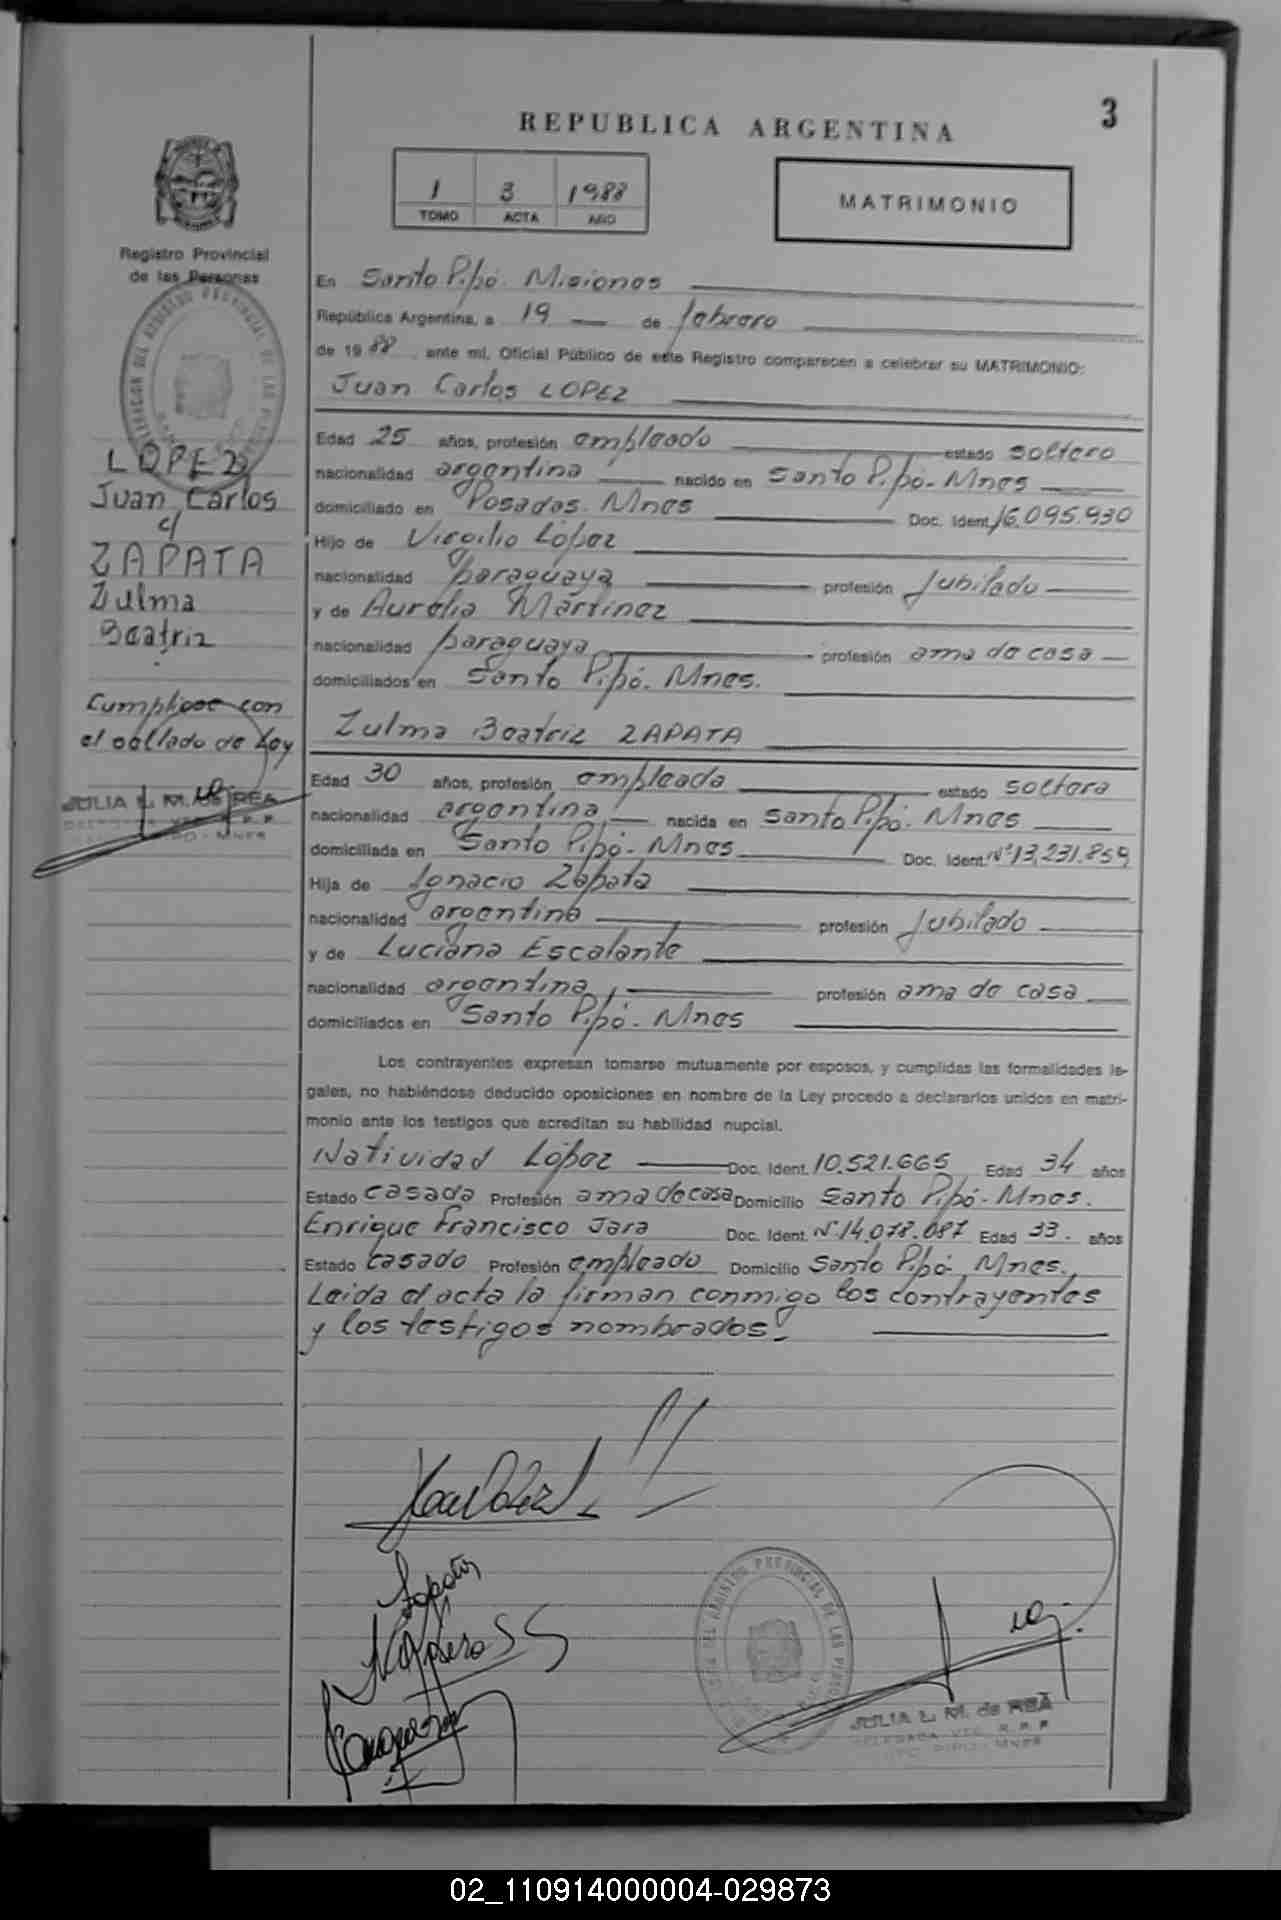 3
REPUBLICA ARGENTINA
1 3 1988
TOMO ACTA AÑO
MATRIMONIO
Registro Provincial
de las Personas
LOPEZ
Juan Carlos
c/
ZAPATA
Zulma
Beatriz
Cumplióse con
el sellado de Ley
JULIA L. M. de REA
En Santo Pipó. Misiones
República Argentina, a 19 de febrero
de 1988, ante mí, Oficial Público de este Registro comparecen a celebrar su MATRIMONIO:
Juan Carlos LOPEZ
Edad 25 años, profesión empleado estado soltero
nacionalidad argentina nacido en Santo Pipó-Mnes
domiciliado en Posadas. Mnes Doc. Ident. 16.095.930
Hijo de Virgilio López
nacionalidad paraguaya profesión Jubilado
y de Aurelia Martinez
nacionalidad paraguaya profesión ama de casa
domiciliados en Santo Pipó. Mnes.
Zulma Beatriz ZAPATA
Edad 30 años, profesión empleada estado soltera
nacionalidad argentina nacida en Santo Pipó. Mnes
domiciliada en Santo Pipó-Mnes Doc. Ident. Nº 13.231.859
Hija de Ignacio Zapata
nacionalidad argentina profesión Jubilado
y de Luciana Escalante
nacionalidad argentina, profesión ama de casa
domiciliados en Santo Pipó. Mnes
Los contrayentes expresan tomarse mutuamente por esposos, y cumplidas las formalidades le-
gales, no habiéndose deducido oposiciones en nombre de la Ley procedo a declararlos unidos en matri-
monio ante los testigos que acreditan su habilidad nupcial.
Natividad López Doc. Ident. 10.521.665 Edad 34 años
Estado casada Profesión ama de casa Domicilio Santo Pipó-Mnes.
Enrique Francisco Jara Doc. Ident. Nº 14.078.087 Edad 33. años
Estado casado Profesión empleado Domicilio Santo Pipó Mnes.
Leida el acta la firman conmigo los contrayentes
y los testigos nombrados.
JULIA L. M. de REA
02_110914000004-029873